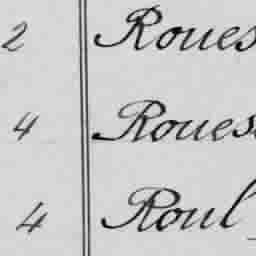 2 Roues
4 Roues
4 Roul